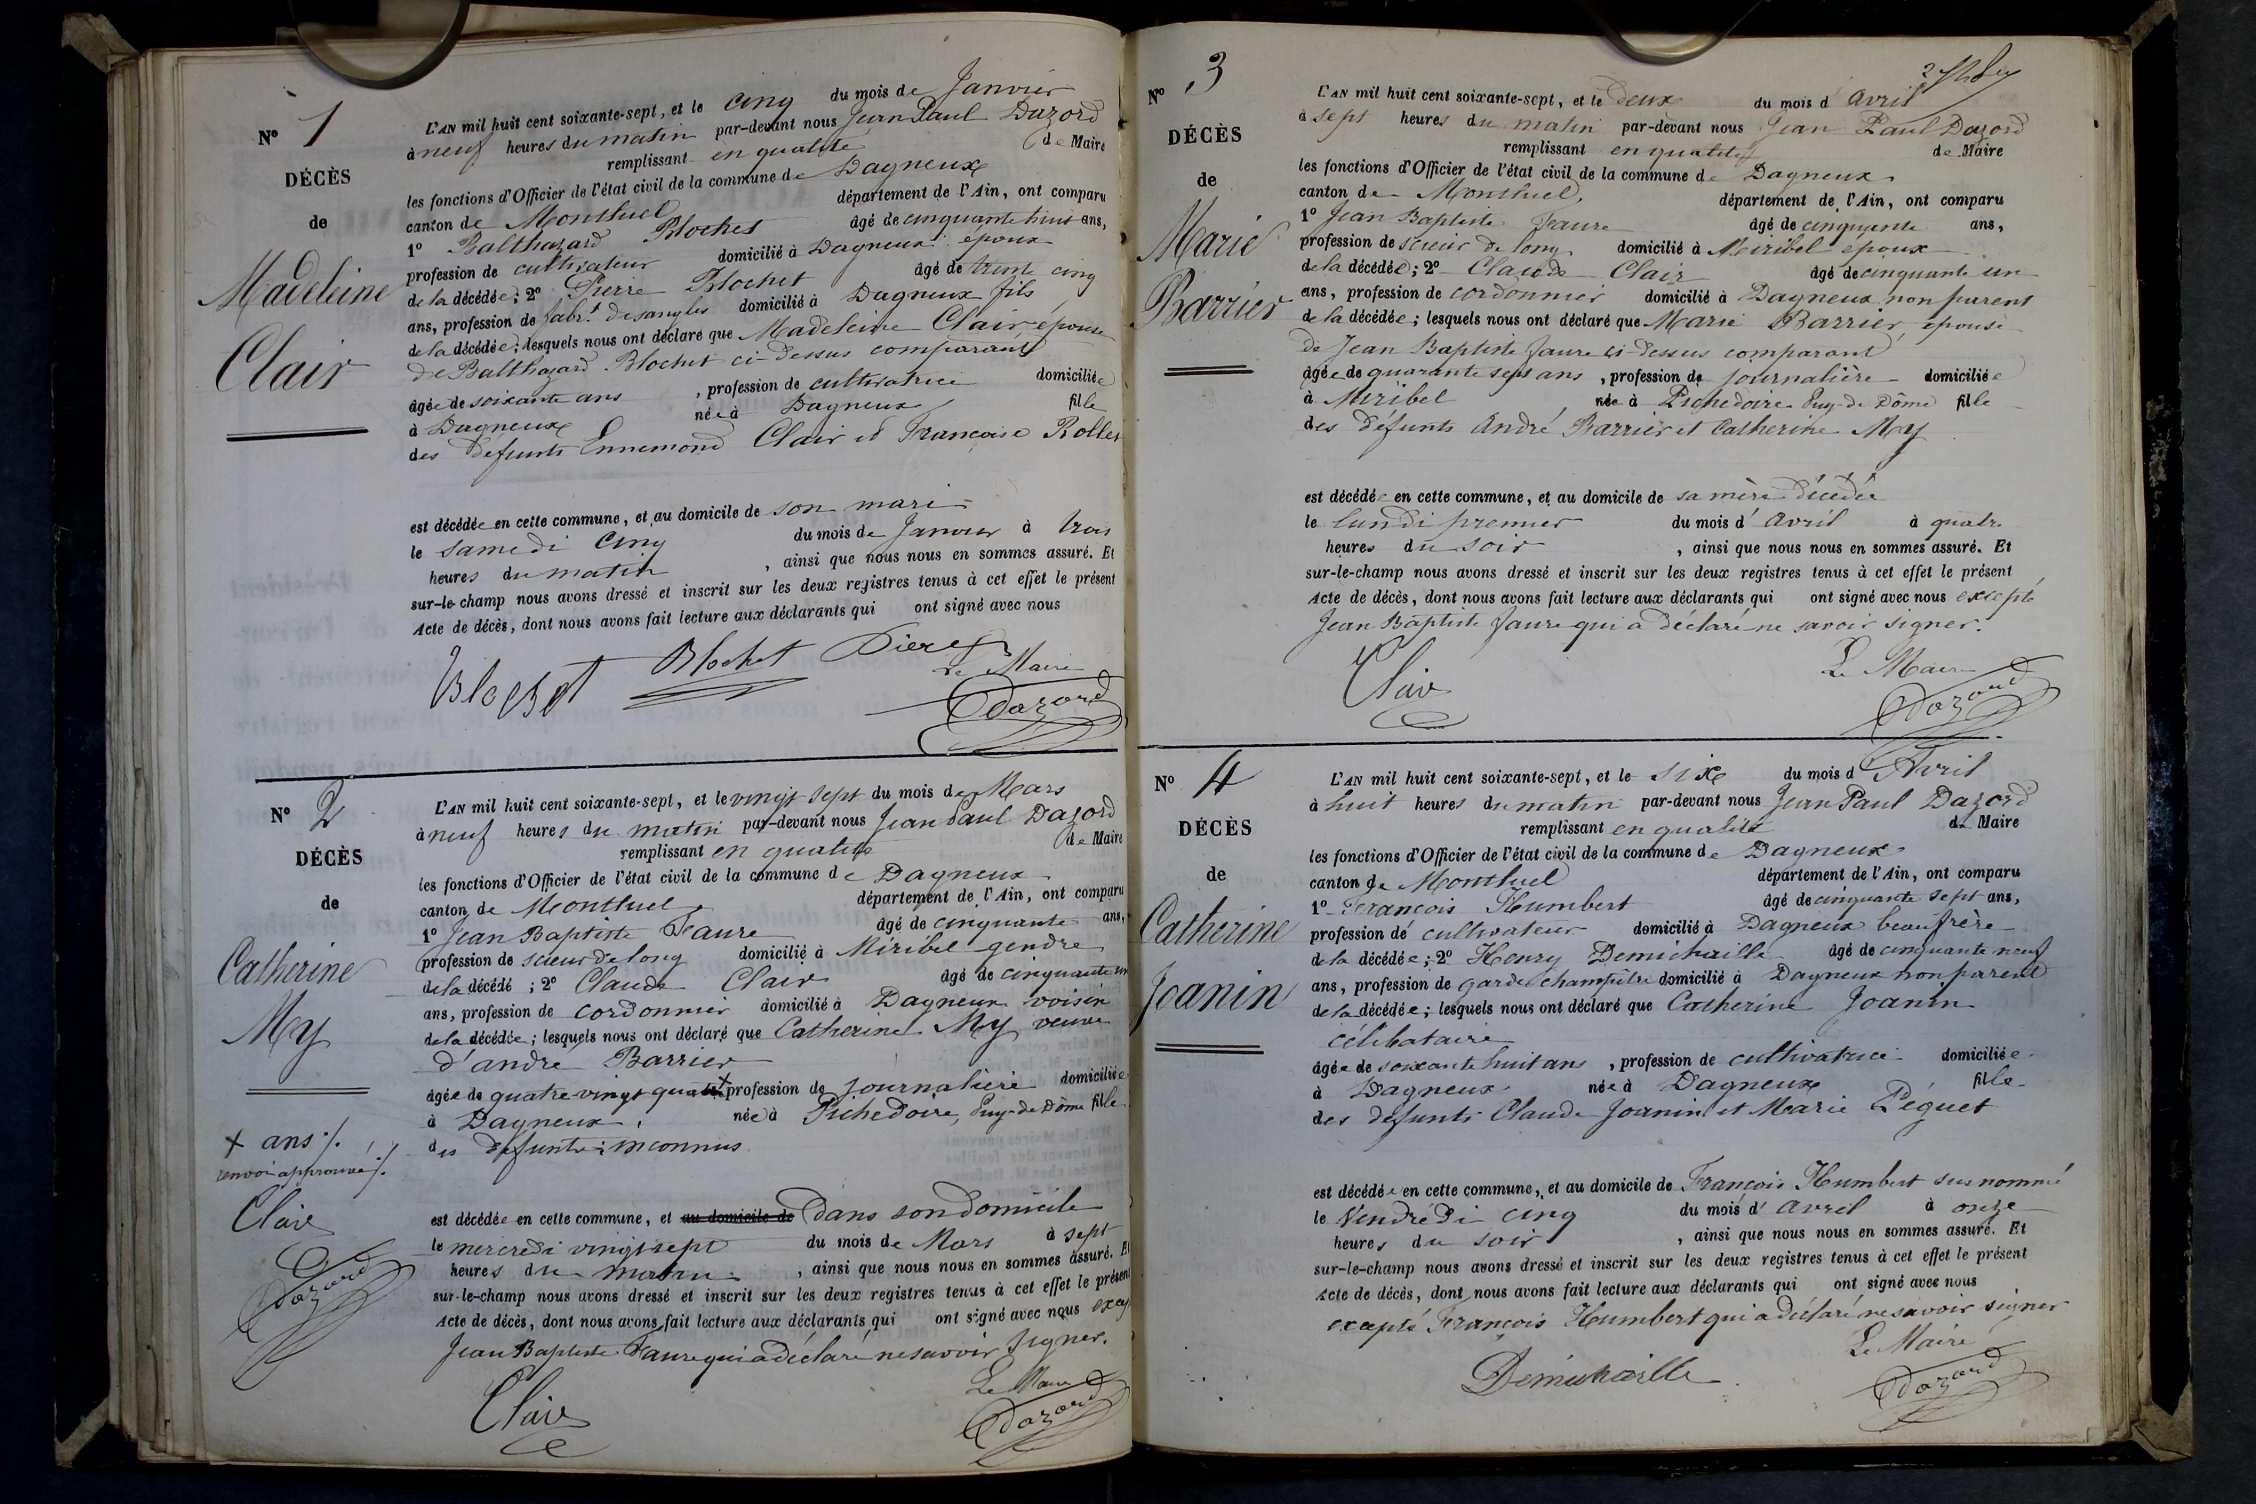 N° 1
DÉCÈS
de
Madeleine
Clair
L'AN mil huit cent soixante-sept, et le cinq du mois de Janvier
à neuf heures du matin par-devant nous Jean Paul Dazord
remplissant en qualité de Maire
les fonctions d'Officier de l'état civil de la commune de Dagneux
canton de Montluel département de l'Ain, ont comparu
1° Balthazard Blochet âgé de cinquante huit ans,
profession de cultivateur domicilié à Dagneux époux
de la décédée; 2° Pierre Blochet âgé de trente cinq
ans, profession de fabr.t de sangles domicilié à Dagneux fils
de la décédée; lesquels nous ont déclaré que Madeleine Clair épouse
de Balthazard Blochet ci-dessus comparant
âgée de soixante ans, profession de cultivatrice domiciliée
à Dagneux née à Dagneux fille
des défunts Ennemond Clair et Françoise Rollet
est décédée en cette commune, et au domicile de son mari
le samedi cinq du mois de Janvier à trois
heures du matin, ainsi que nous nous en sommes assuré. Et
sur-le-champ nous avons dressé et inscrit sur les deux registres tenus à cet effet le présent
Acte de décès, dont nous avons fait lecture aux déclarants qui ont signé avec nous
Blochet Blochet Pierre
Le Maire
Dazord
N° 2
DÉCÈS
de
Catherine
My
+ ans ./.
renvoi approuvé ./.
Clair
Dazord
L'AN mil huit cent soixante-sept, et le vingt sept du mois de Mars
à neuf heures du matin par-devant nous Jean Paul Dazord
remplissant en qualité de Maire
les fonctions d'Officier de l'état civil de la commune de Dagneux
canton de Montluel département de l'Ain, ont comparu
1° Jean Baptiste Faure âgé de cinquante ans,
profession de scieur de long domicilié à Miribel gendre
de la décédé; 2° Claude Clair âgé de cinquante un
ans, profession de cordonnier domicilié à Dagneux voisin
de la décédée; lesquels nous ont déclaré que Catherine My veuve
d'andré Barrier
âgée de quatre vingt quatre + profession de journalière domiciliée
à Dagneux, née à Puchedoire, Puy-de-Dôme fille
des défunts inconnus
est décédée en cette commune, et au domicile de dans son domicile
le mercredi vingt sept du mois de Mars à sept
heures du matin, ainsi que nous nous en sommes assuré. Et
sur-le-champ nous avons dressé et inscrit sur les deux registres tenus à cet effet le présent
Acte de décès, dont nous avons fait lecture aux déclarants qui ont signé avec nous excep
Jean Baptiste Faure qui a déclaré ne savoir signer.
Clair
Le Maire
Dazord
N° 3
DÉCÈS
de
Marie
Barrier
L'AN mil huit cent soixante-sept, et le deux du mois d'Avril
à sept heures du matin par-devant nous Jean Paul Dazord
remplissant en qualité de Maire
les fonctions d'Officier de l'état civil de la commune de Dagneux
canton de Montluel, département de l'Ain, ont comparu
1° Jean Baptiste Faure âgé de cinquante ans,
profession de scieur de long domicilié à Miribel époux
de la décédée; 2° Claude Clair âgé de cinquante un
ans, profession de cordonnier domicilié à Dagneux non parent
de la décédée; lesquels nous ont déclaré que Marie Barrier épouse
de Jean Baptiste Faure ci-dessus comparant
âgée de quarante sept ans, profession de journalière domiciliée
à Miribel née à Puchedoire Puy-de-Dôme fille
des défunts André Barrier et Catherine My
est décédée en cette commune, et au domicile de sa mère décédée
le lundi premier du mois d'Avril à quatre
heures du soir, ainsi que nous nous en sommes assuré. Et
sur-le-champ nous avons dressé et inscrit sur les deux registres tenus à cet effet le présent
Acte de décès, dont nous avons fait lecture aux déclarants qui ont signé avec nous excepté
Jean Baptiste Faure qui a déclaré ne savoir signer.
Clair
Le Maire
Dazord
N° 4
DÉCÈS
de
Catherine
Joanin
L'AN mil huit cent soixante-sept, et le six du mois d'Avril
à huit heures du matin par-devant nous Jean Paul Dazord
remplissant en qualité de Maire
les fonctions d'Officier de l'état civil de la commune de Dagneux
canton de Montluel département de l'Ain, ont comparu
1° François Humbert âgé de cinquante sept ans,
profession de cultivateur domicilié à Dagneux beaufrère
de la décédée; 2° Henry Demichaille âgé de cinquante neuf
ans, profession de garde champêtre domicilié à Dagneux non parent
de la décédée; lesquels nous ont déclaré que Catherine Joanin
célibataire
âgée de soixante huit ans, profession de cultivatrice domiciliée
à Dagneux née à Dagneux fille
des défunts Claude Joanin et Marie Péguet
est décédée en cette commune, et au domicile de François Humbert sus nommé
le Vendredi cinq du mois d'Avril à onze
heures du soir, ainsi que nous nous en sommes assuré. Et
sur-le-champ nous avons dressé et inscrit sur les deux registres tenus à cet effet le présent
Acte de décès, dont nous avons fait lecture aux déclarants qui ont signé avec nous
excepté François Humbert qui a déclaré ne savoir signer
Demichaille
Le Maire
Dazord